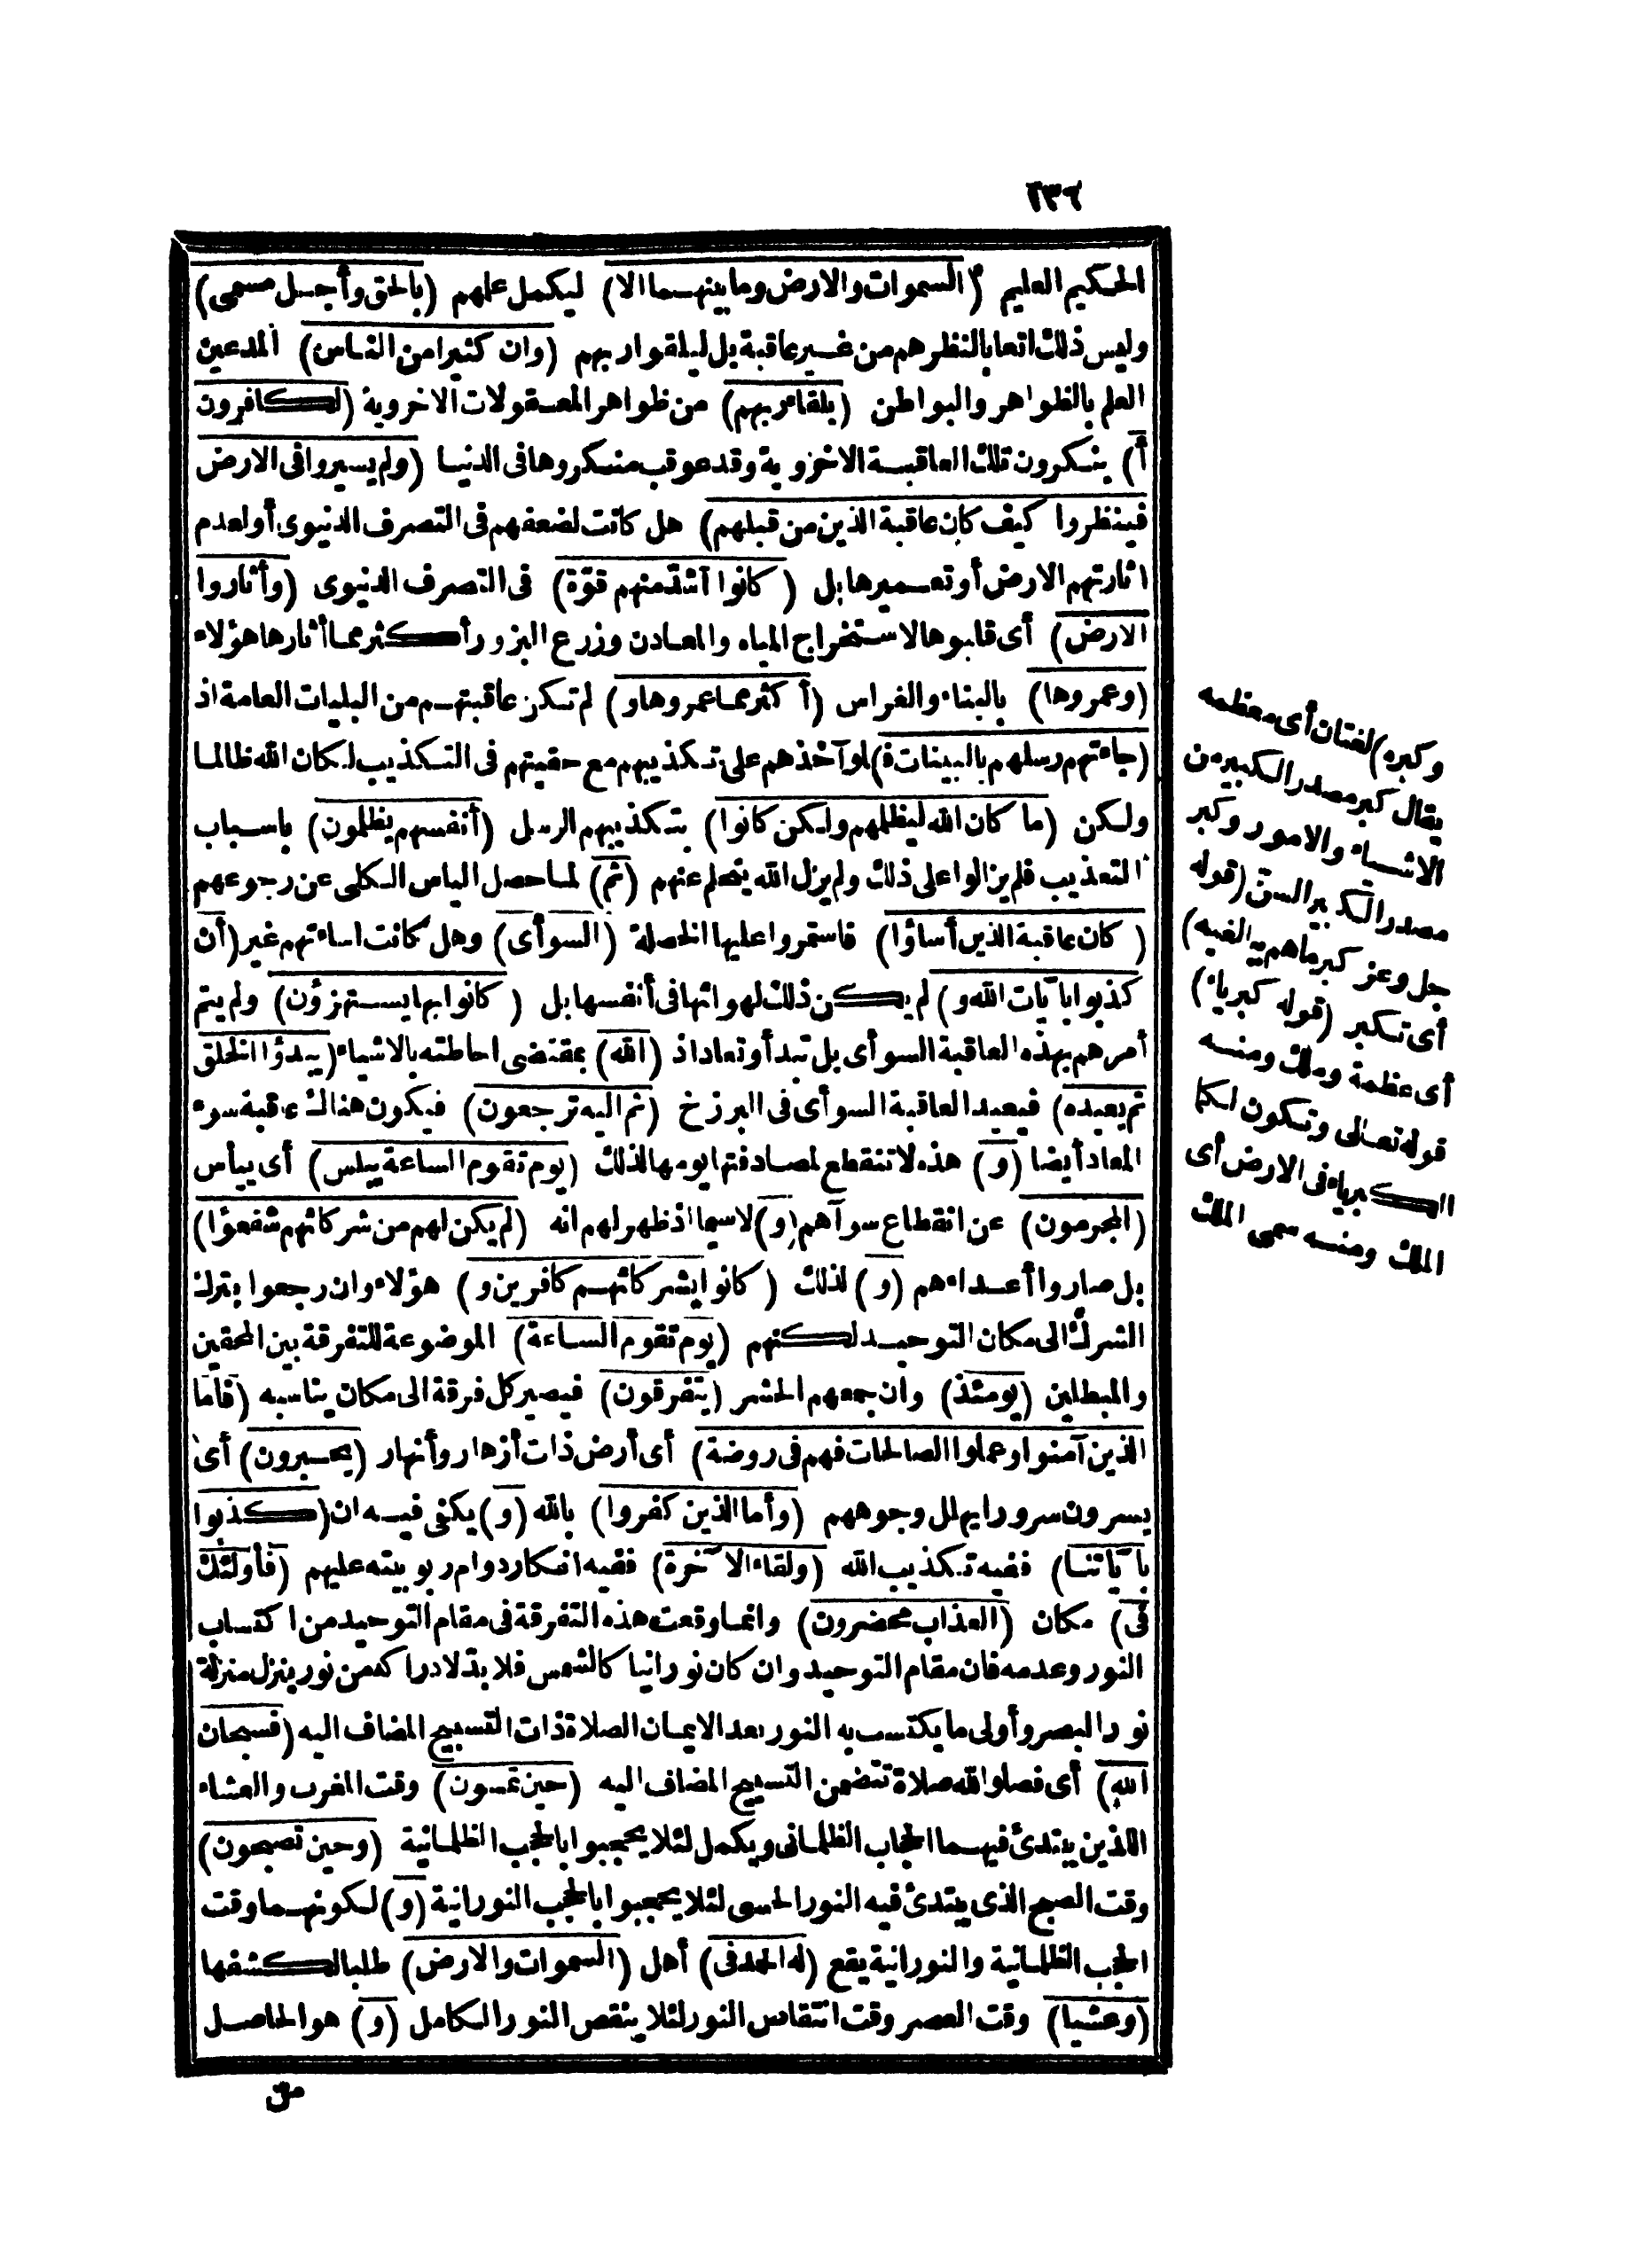 ١٣٦
الحكيم العليم (السموات والارض وما بينهما الا) ليكمل علمهم (بالحق وأجل مسمى)
وليس ذلك اتعابا لنظرهم من غير عاقبة بل ليلقوا ربهم (وان كثيرا من الناس) المدعين
العلم بالظواهر والبواطن (بلقاء ربهم) من ظواهر المعقولات الاخروية (لكافرون
أ) ينكرون تلك العاقبة الاخروية وقد عوقب منكروها فى الدنيا (ولم يسيروا فى الارض
فينظروا كيف كان عاقبة الذين من قبلهم) هل كانت لضعفهم فى التصرف الدنيوى أو لعدم
اثارتهم الارض أو تعميرها بل (كانوا أشد منهم قوّة) فى التصرف الدنيوى (وأثاروا
الارض) أى قلبوها لاستخراج المياه والمعادن وزرع البزور أكثر مما أثارها هؤلاء
(وعمروها) بالبناء والغراس (أكثر مما عمروها و) لم تكن عاقبتهم من البليات العامة اذ
(جاءتهم رسلهم بالبينات ف) لو آخذهم على تكذيبهم مع حقيتهم فى التكذيب لكان الله ظالما
ولكن (ما كان الله ليظلمهم ولكن كانوا) بتكذيبهم الرسل (أنفسهم يظلمون) باسباب
التعذيب فلم يزالوا على ذلك ولم يزل الله يحلم عنهم (ثم) لما حصل الياس الكلى عن رجوعهم
(كان عاقبة الذين أساؤا) فاستمروا عليها الخصلة (السوأى) وهل كانت اساءتهم غير (أن
كذبوا بآيات الله و) لم يكن ذلك لهوانها فى أنفسها بل (كانوا بها يستهزؤن) ولم يتم
أمرهم بهذه العاقبة السوأى بل تبدأ وتعاد اذ (الله) بمقتضى احاطته بالاشياء (يبدؤا الخلق
ثم يعيده) فيعيد العاقبة السوأى فى البرزخ (ثم اليه ترجعون) فيكون هناك عاقبة سوء
المعاد أيضا (و) هذه لا تنقطع لمصادفتها يومها لذلك (يوم تقوم الساعة يبلس) أى ييأس
(المجرمون) عن انقطاع سوآهم (و) لا سيما اذ ظهر لهم انه (لم يكن لهم من شركائهم شفعؤا)
بل صاروا أعداءهم (و) لذلك (كانوا بشركائهم كافرين و) هؤلاء وان رجعوا بترك
الشرك الى مكان التوحيد لكنهم (يوم تقوم الساعة) الموضوعة للتفرقة بين المحقين
والمبطلين (يومئذ) وان جمعهم الحشر (يتفرقون) فيصير كل فرقة الى مكان يناسبه (فأما
الذين آمنوا وعملوا الصالحات فهم فى روضة) أى أرض ذات أزهار وأنهار (يحبرون) أى
يسرون سرورا يهلل وجوههم (وأما الذين كفروا) بالله (و) يكفى فيه ان (كذبوا
بآياتنا) ففيه تكذيب الله (ولقاء الآخرة) ففيه انكار دوام ربوبيته عليهم (فأولئك
فى) مكان (العذاب محضرون) وانما وقعت هذه التفرقة فى مقام التوحيد من اكتساب
النور وعدمه فان مقام التوحيد وان كان نورانيا كالشمس فلا بد لادراكه من نور ينزل منزلة
نور البصر وأولى ما يكتسب به النور بعد الايمان الصلاة ذات التسبيح المضاف اليه (فسبحان
الله) أى فصلوا لله صلاة تتضمن التسبيح المضاف اليه (حين تمسون) وقت المغرب والعشاء
اللذين يبتدئ فيهما الحجاب الظلمانى ويكمل لئلا يحجبوا بالحجب الظلمانية (وحين تصبحون)
وقت الصبح الذى يبتدئ فيه النور الحسى لئلا يحجبوا بالحجب النورانية (و) لكونهما وقت
الحجب الظلمانية والنورانية يقع (له الحمد فى) أهل (السموات والارض) طلبا لكشفها
(وعشيا) وقت العصر وقت انتقاص النور لئلا ينقص النور الكامل (و) هو الحاصل
من
وكبره) لغتان أى معظمه
يقال كبر مصدر الكبير من
الاشياء والامور وكبر
مصدر الكبير السن (قوله
جل وعز كبر ما هم ببالغيه)
أى تكبر (قوله كبرياء)
أى عظمة وملك ومنه
قوله تعالى وتكون لكما
الكبرياء فى الارض أى
الملك ومنه سمى الملك